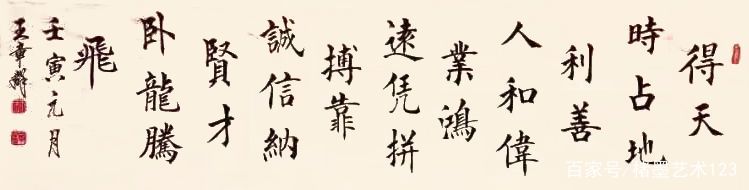 得天
時占地
利善
人和偉
業鴻
遠凭拼
搏靠
誠信納
賢才
卧龍騰
飛
壬寅元月
王章
百家号/墨艺术123